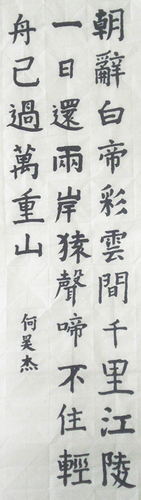 朝辭白帝彩雲間千里江陵
一日還兩岸猿聲啼不住輕
舟已過萬重山
何昊杰